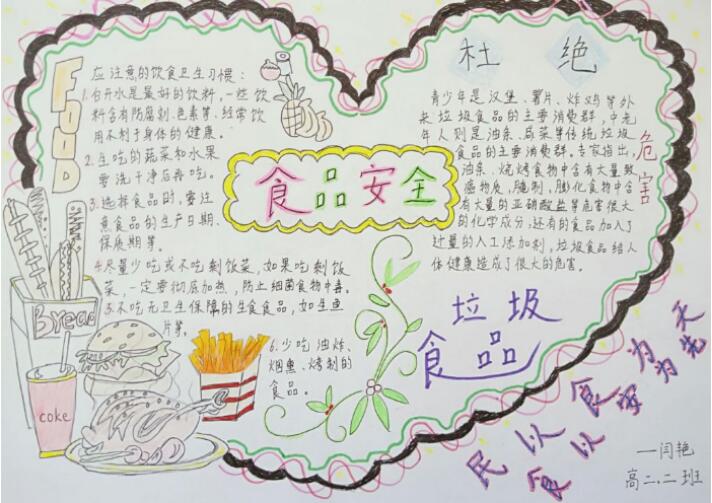 FOOD
应注意的饮食卫生习惯：
1.白开水是最好的饮料，一些饮
料含有防腐剂、色素等、经常饮
用不利于身体的健康。
2.生吃的蔬菜和水果
要洗干净后再吃。
3.选择食品时，要注
意食品的生产日期、
保质期等。
4.尽量少吃或不吃剩饭菜，如果吃剩饭
菜，一定要彻底加热，防止细菌食物中毒。
5.不吃无卫生保障的生食食品，如生鱼
片等。
6.少吃油炸、
烟熏、烤制的
食品。
Bread
coke
食品安全
杜绝
青少年是汉堡、薯片、炸鸡等外
来垃圾食品的主要消费群，中老
年人则是油条、咸菜等传统垃圾
食品的主要消费群。专家指出，
油条、烧烤食物中含有大量致
癌物质，腌制、膨化食物中含
有大量的亚硝酸盐等危害很大
的化学成分，还有的食品加入了
过量的人工添加剂，垃圾食品给人
体健康造成了很大的危害。
危害
垃圾
食品
民以食为天
食以安为先
一闫艳
高二.二班